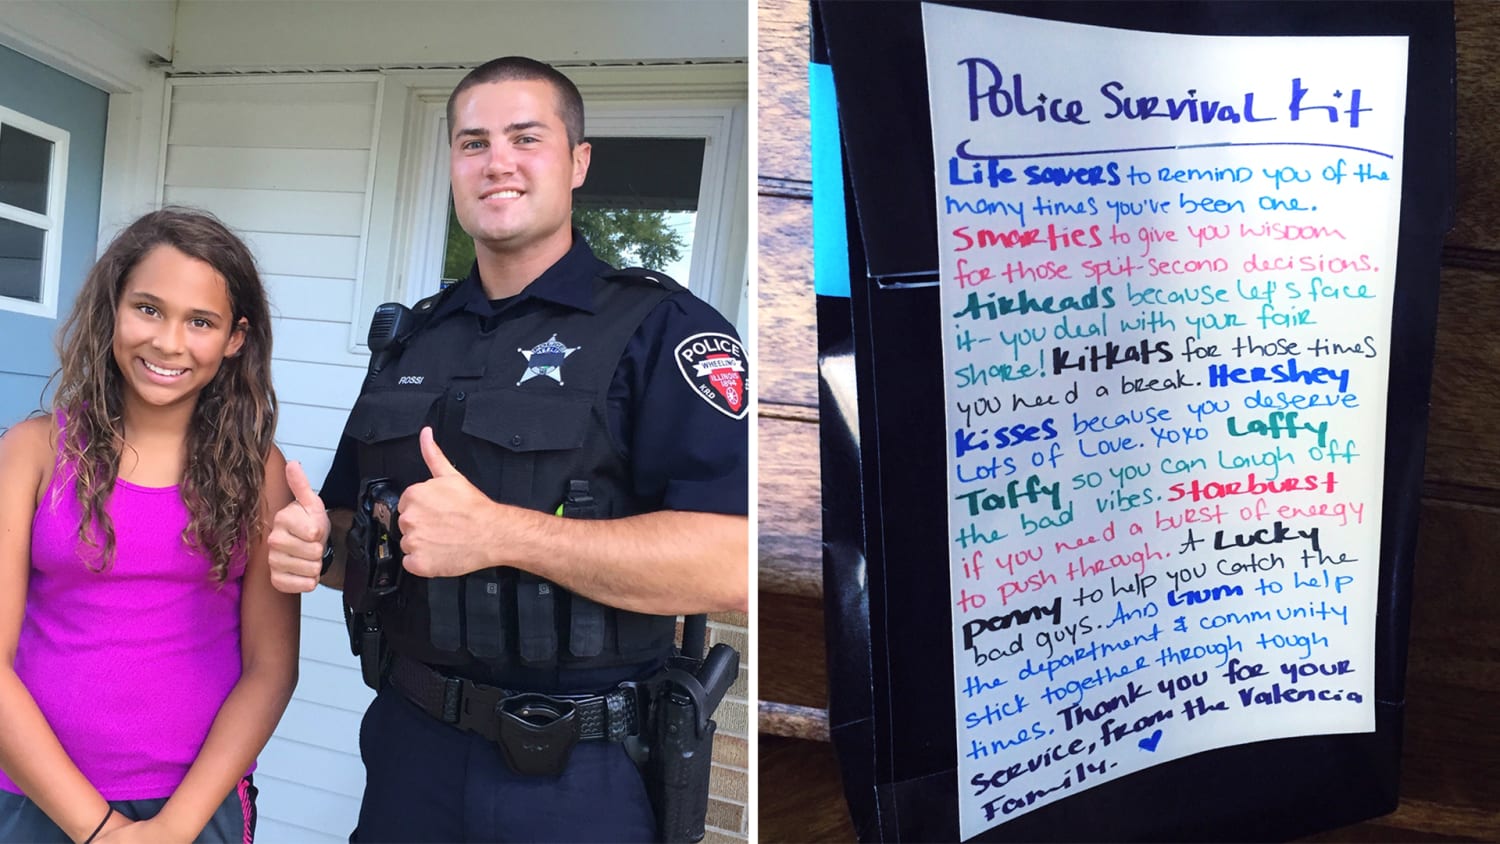 ROSSI
POLICE
WHEELING
ILLINOIS
1894
KRD
Police Survival Kit
Life savers to remind you of the
many times you've been one.
Smarties to give you wisdom
for those split-second decisions.
Airheads because let's face
it- you deal with your fair
share! KitKats for those times
you need a break. Hershey
Kisses because you deserve
lots of love. xoxo Laffy
Taffy so you can laugh off
the bad vibes. Starburst
if you need a burst of energy
to push through. A Lucky
penny to help you catch the
bad guys. And Gum to help
the department & community
stick together through tough
times. Thank you for your
service, from the Valencia
Family.